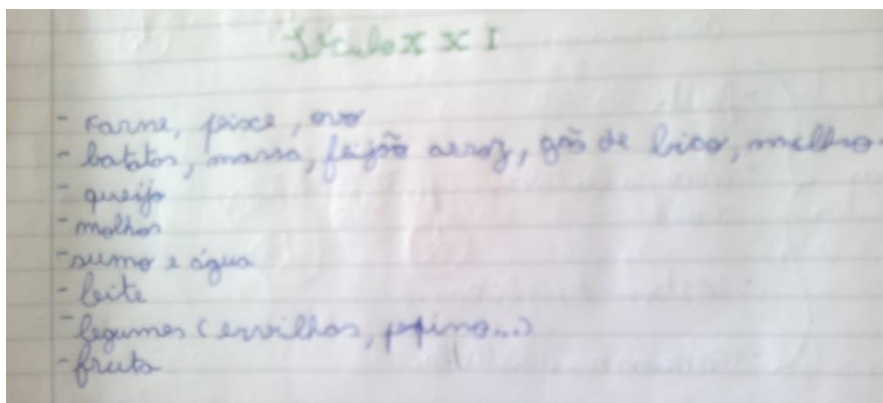 Século XXI
- carne, pixce, ovo
- batatas, massa, feijão arroz, grão de bico, milho.
- queijo
- molhos
- sumo e água
- leite
- legumes (ervilhas, pepino...)
- fruta